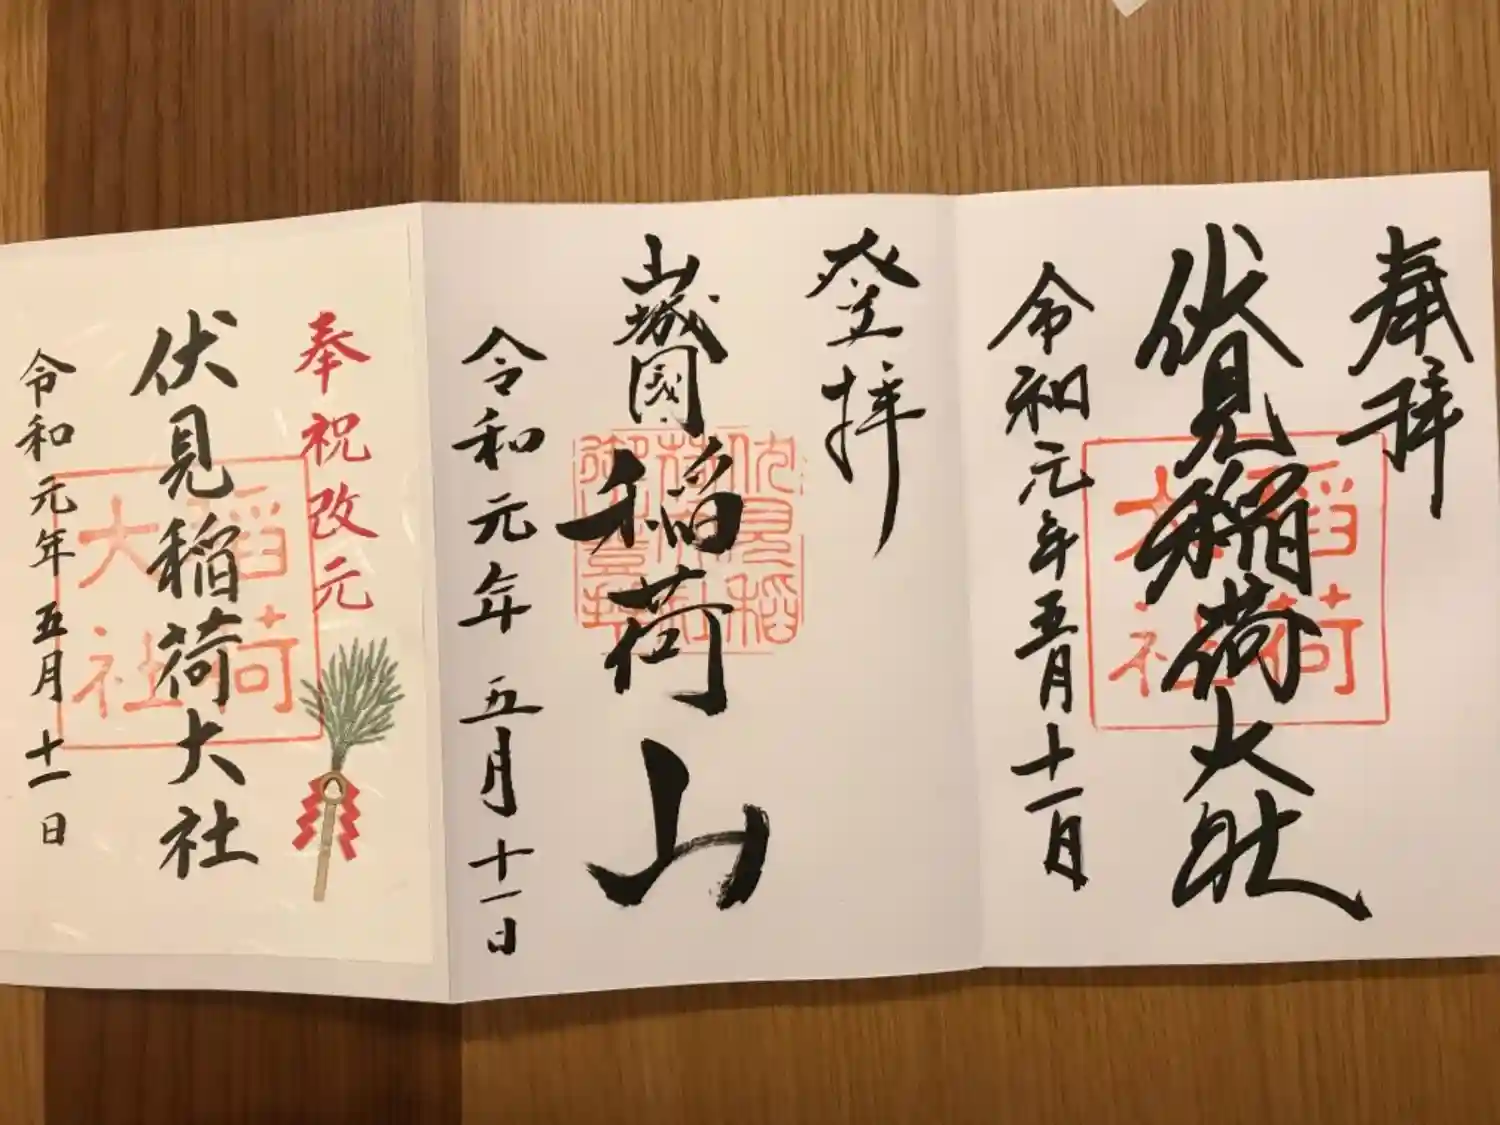 奉拝
伏見稲荷大社
稲荷
大社
令和元年五月十一日
登拝
山城國
稲荷山
伏見稲
荷大社
御茶壺奉
令和元年 五月十一日
奉祝改元
伏見稲荷大社
稲荷
大社
令和元年 五月十一日